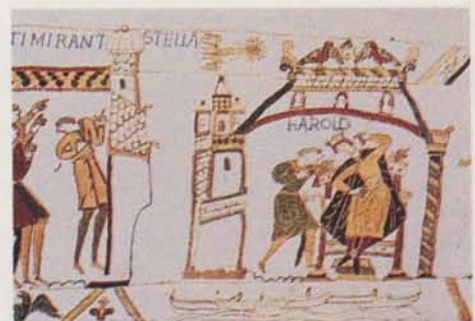 TI MIRANT STELLA
HAROLD